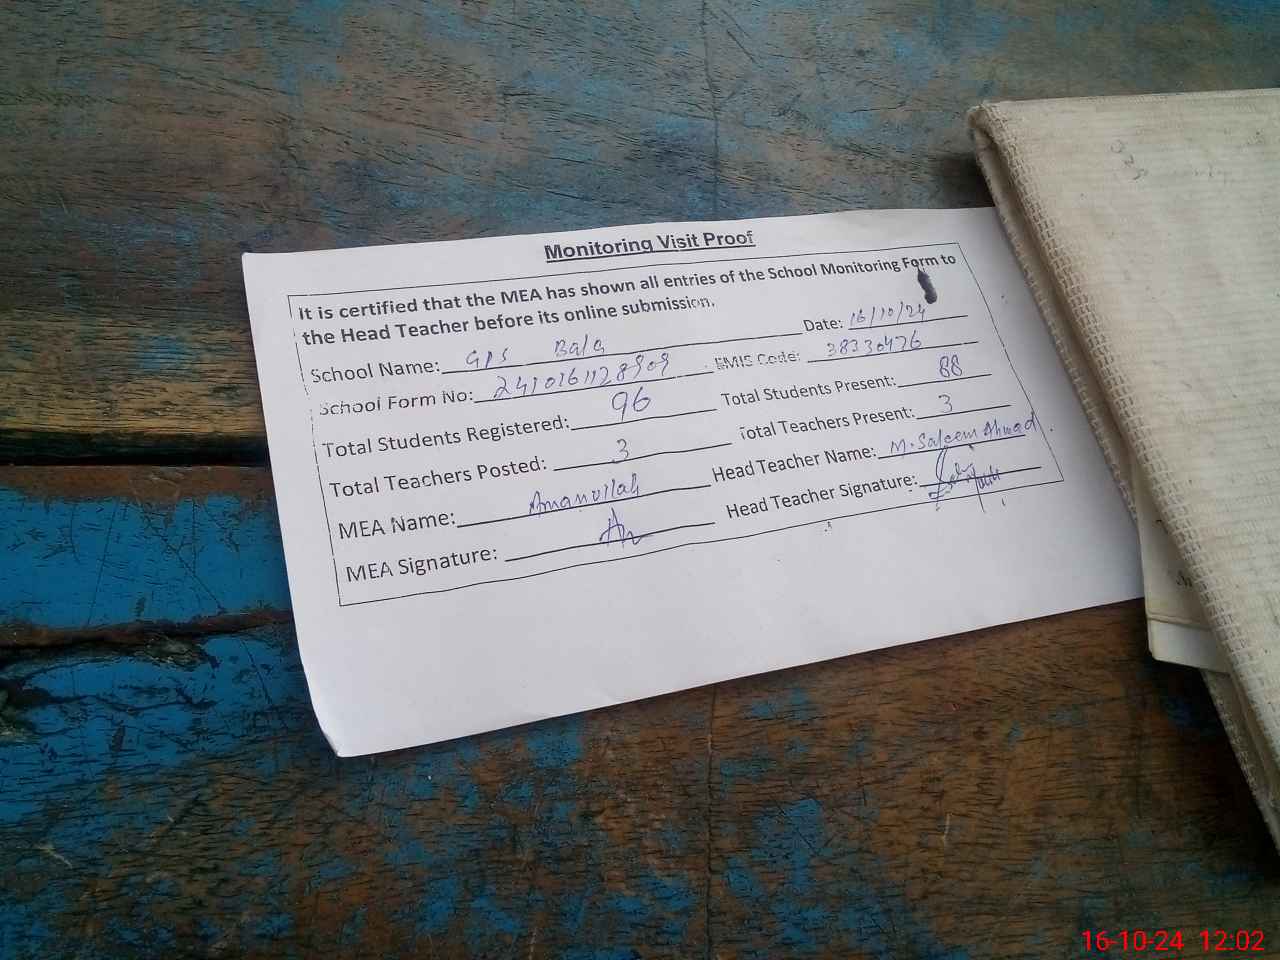 Monitoring Visit Proof
It is certified that the MEA has shown all entries of the School Monitoring Form to
the Head Teacher before its online submission.
School Name: GPS Bala Date: 16/10/24
School Form No: 2410161128909 EMIS Code: 38330476
Total Students Registered: 96 Total Students Present: 88
Total Teachers Posted: 3 Total Teachers Present: 3
MEA Name: Amanullah Head Teacher Name: M. Saleem Ahmad
MEA Signature: Head Teacher Signature:
16-10-24 12:02